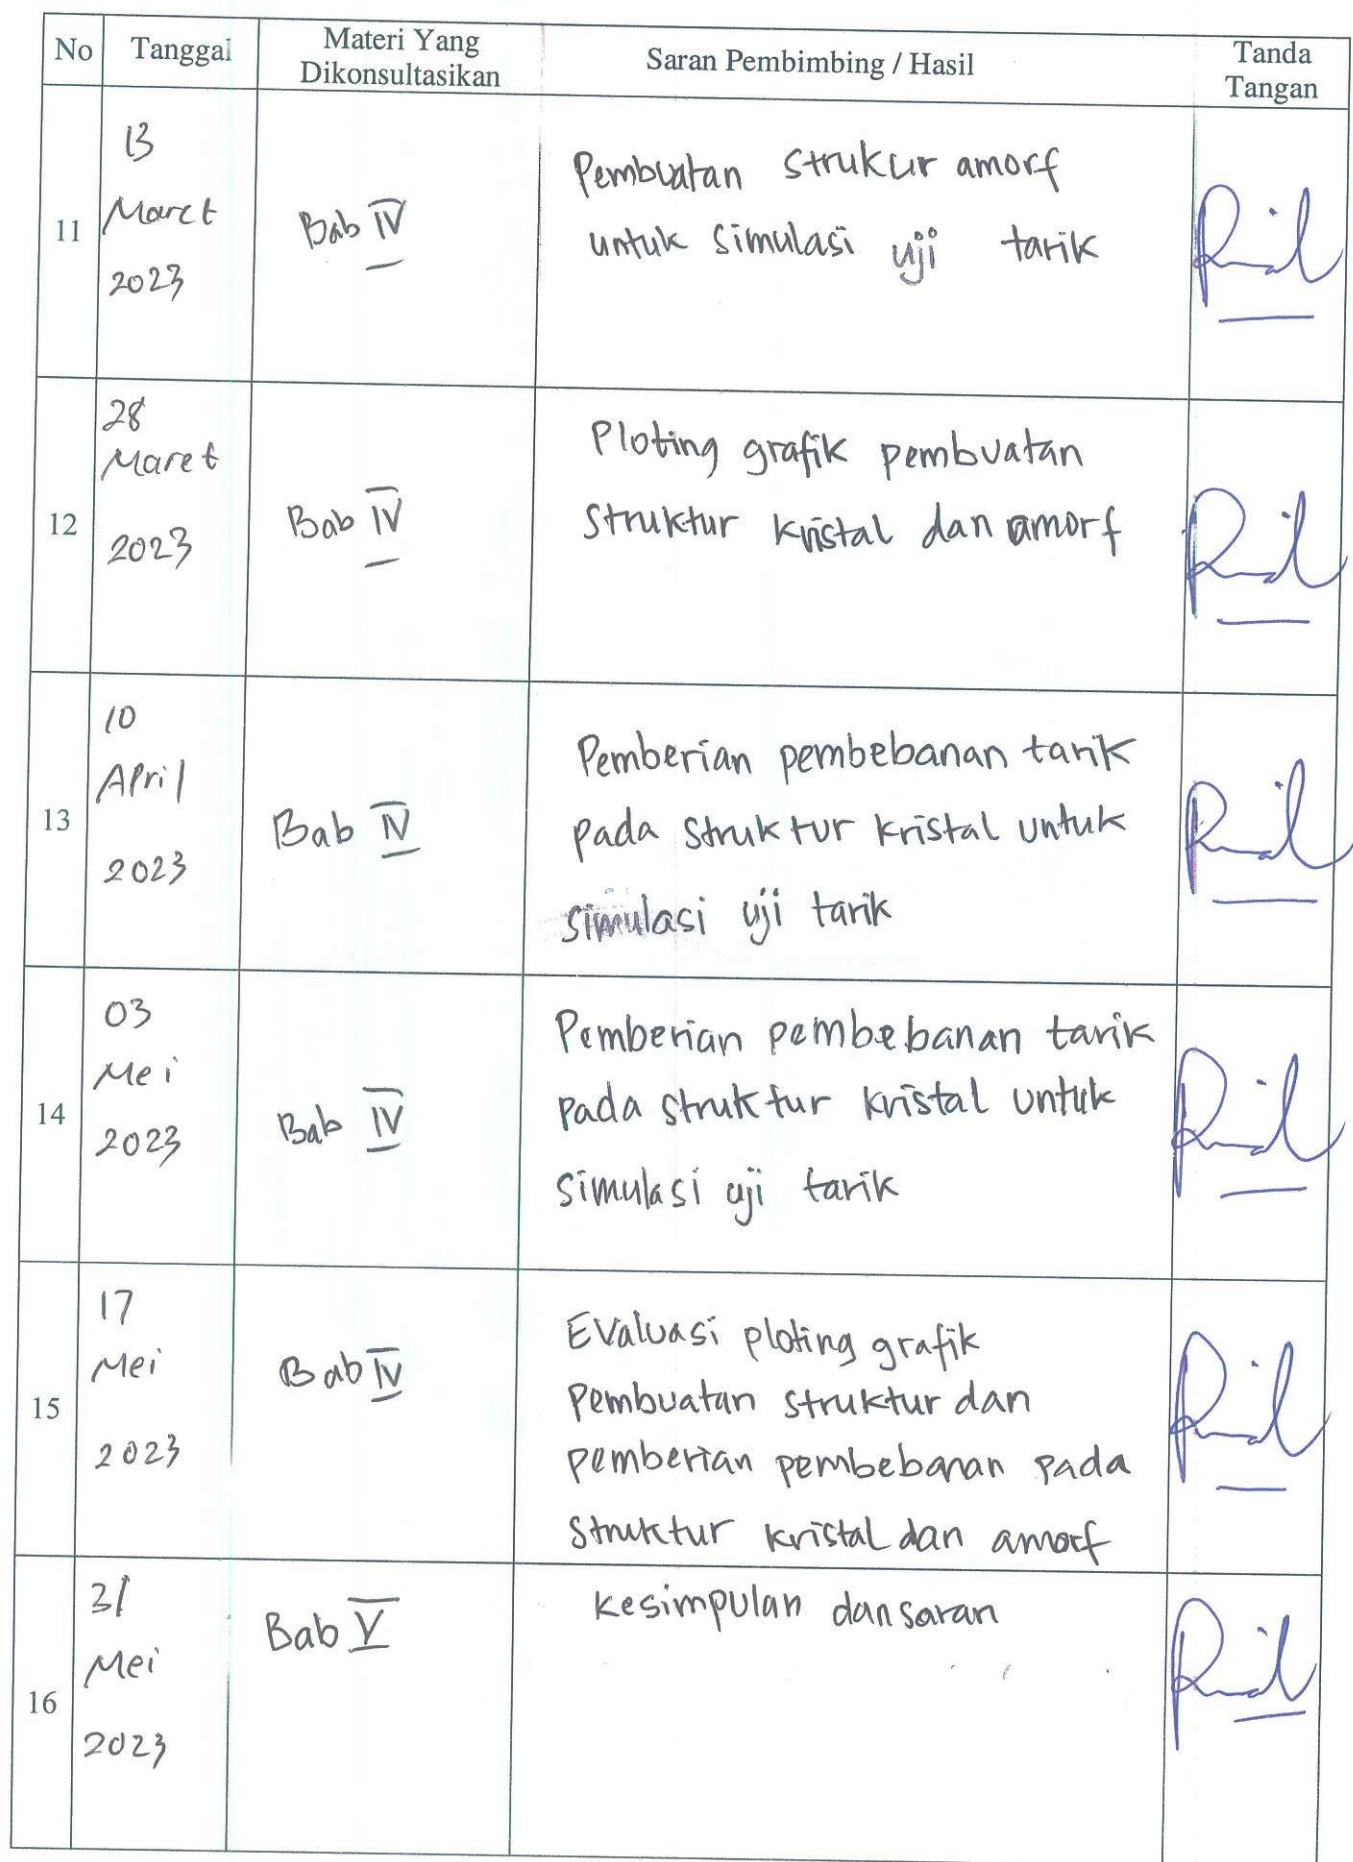 No Tanggal Materi Yang Dikonsultasikan Saran Pembimbing / Hasil Tanda Tangan
11
13
Maret
2023
Bab IV
Pembuatan strukur amorf
untuk simulasi uji tarik
12
28
Maret
2023
Bab IV
Ploting grafik pembuatan
struktur kristal dan amorf
13
10
April
2023
Bab IV
Pemberian pembebanan tarik
pada struktur kristal untuk
simulasi uji tarik
14
03
Mei
2023
Bab IV
Pemberian pembebanan tarik
pada struktur kristal untuk
simulasi uji tarik
15
17
Mei
2023
Bab IV
Evaluasi ploting grafik
pembuatan struktur dan
pemberian pembebanan pada
struktur kristal dan amorf
16
31
Mei
2023
Bab V
kesimpulan dan saran